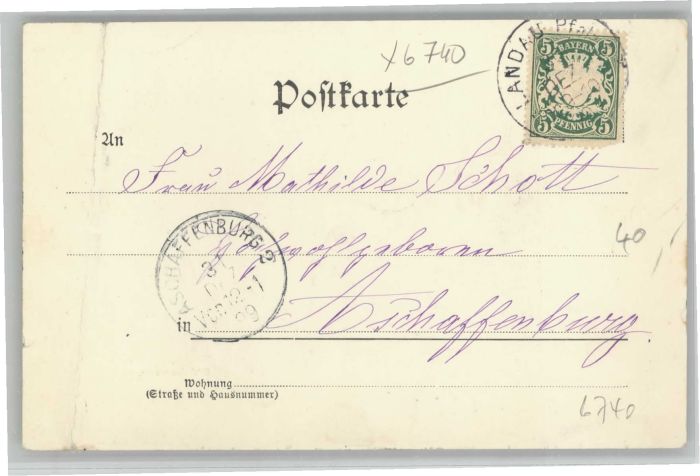 x6740
LANDAU Pfalz
5 BAYERN 5
5 PFENNIG 5
Postkarte
An
Frau Mathilde Schott
Hochwohlgeboren
40
ASCHAFFENBURG 2
Vor. 12-1
99
in Aschaffenburg.
Wohnung
(Straße und Hausnummer)
6740